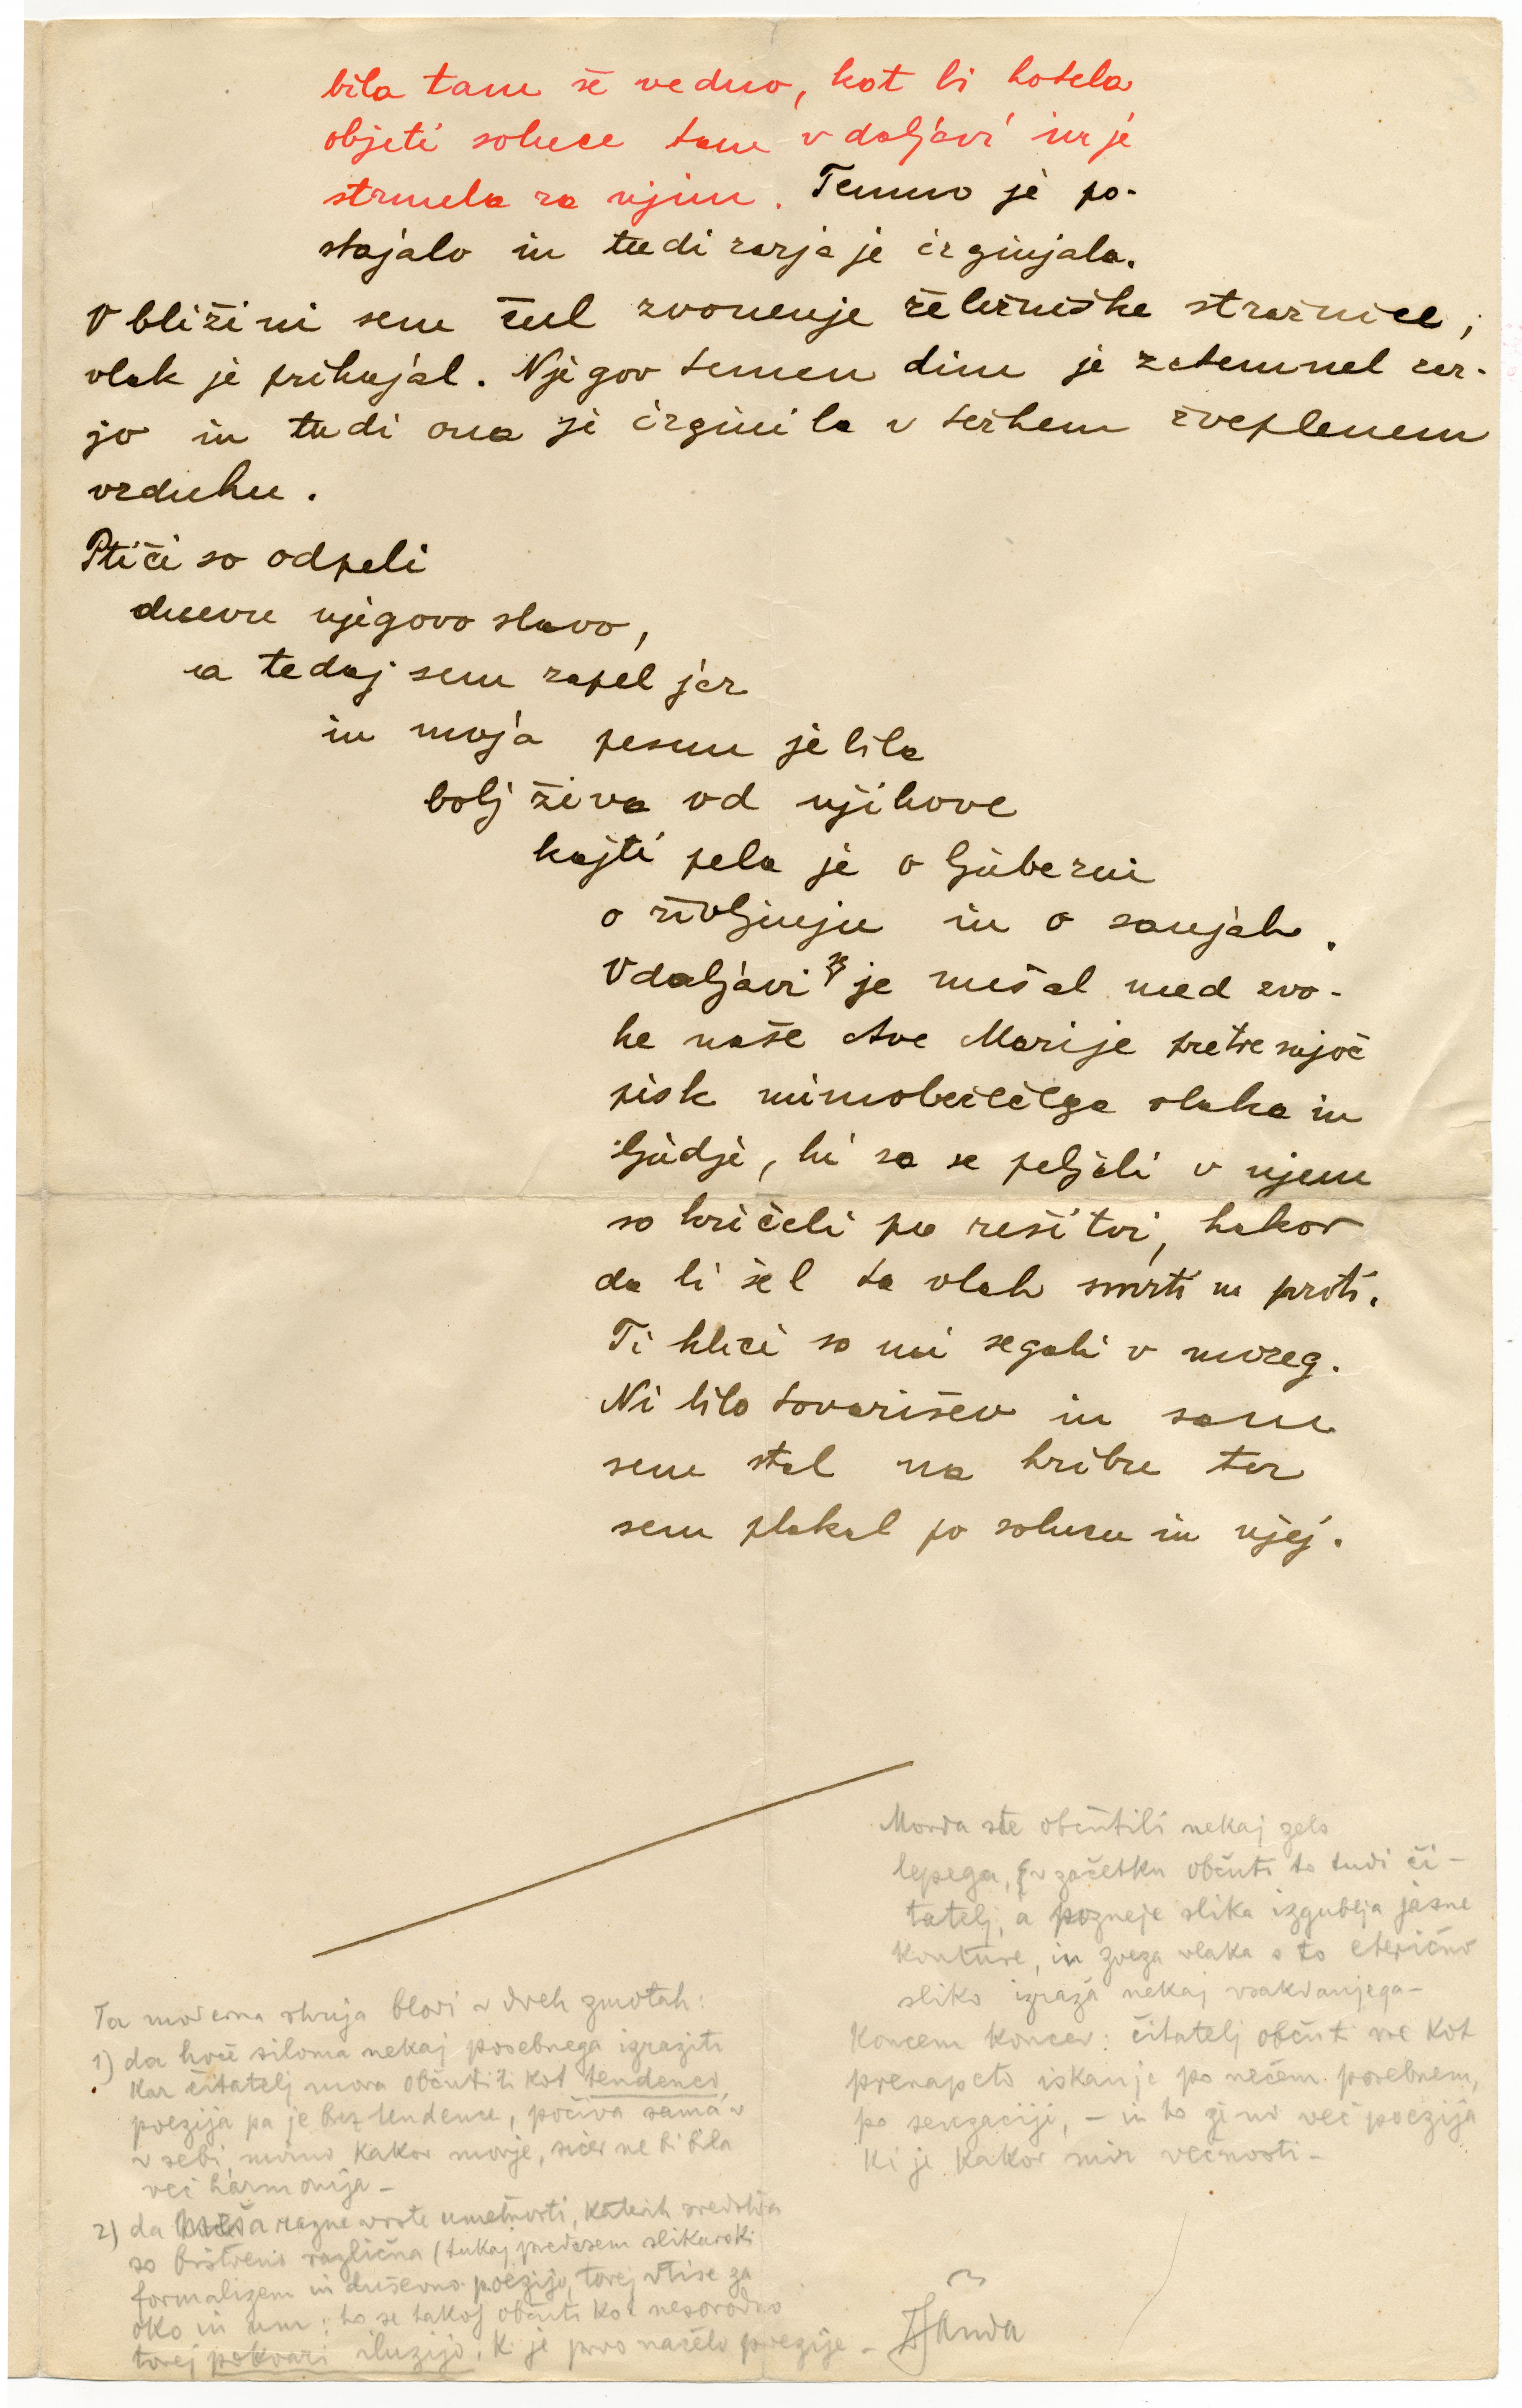 bila tam še vedno, kot bi hotela
objeti solnce tam v daljavi in je
strmela za njim. Temno je po-
stajalo in tudi zarja je izginjala.
V bližini sem čul zvonenje železniške stražnice,
vlak je prihajal. Njegov temen dim je zatemnel zar-
jo in tudi ona je izginila v težkem žveplenem
vzduhu.
Ptiči so odpeli
dnevu njegovo slavo,
a tedaj sem zapel jaz
in moja pesem je bila
bolj živa od njihove
kajti pela je o ljubezni
o življenju in o sanjah.
V daljavi se je mešal med zvo-
ke naše Ave Marije pretresujoč
pisk mimobežečega vlaka in
ljudje, ki so se peljali v njem
so kričali po rešitvi, kakor
da bi šel ta vlak smrti na proti.
Ti klici so mi segali v mozeg.
Ni bilo tovarišev in sam
sem stal na hribu ter
sem plakal po solncu in njej.
Morda ste občutili nekaj zelo
lepega, v začetku občuti to tudi či-
tatelj, a pozneje slika izgublja jasne
konture, in zveza vlaka s to eterično
sliko izraža nekaj vsakdanjega —
Koncem koncev: čitatelj občuti vse kot
prenapeto iskanje po nečem posebnem,
po senzaciji, — in to ži ni več poezija
ki je kakor mir večnosti —
Ta moderna struja blodi v dveh zmotah:
1) da hoče siloma nekaj posebnega izraziti
kar čitatelj mora občutiti kot tendenco,
poezija pa je brez tendence, počiva sama v
v sebi mirno kakor morje, sicer ne bi bila
več harmonija —
2) da meša razne vrste umetnosti, katerih sredstva
so bistveno različna (tukaj predvsem slikarski
formalizem in duševno poezijo, torej vtise za
oko in um; to se takoj občuti kot nesorodno
torej pokvari iluzijo, ki je prvo načelo poezije —